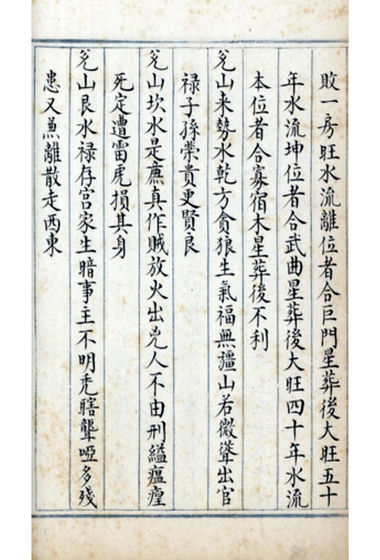 敗一房旺水流離位者合巨門星葬後大旺五十
年水流坤位者合武曲星葬後大旺四十年水流
本位者合寡宿木星葬後不利
兊山来勢水乾方貪狼生氣福無疆山若微聳出官
禄子孫荣貴更賢良
兊山坎水是亷真作賊放火出兇人不由刑縊瘟㾮
死定遭雷虎損其身
兊山艮水禄存宫家生暗事主不明秃瞎聾啞多殘
患又𠔥離散走西東